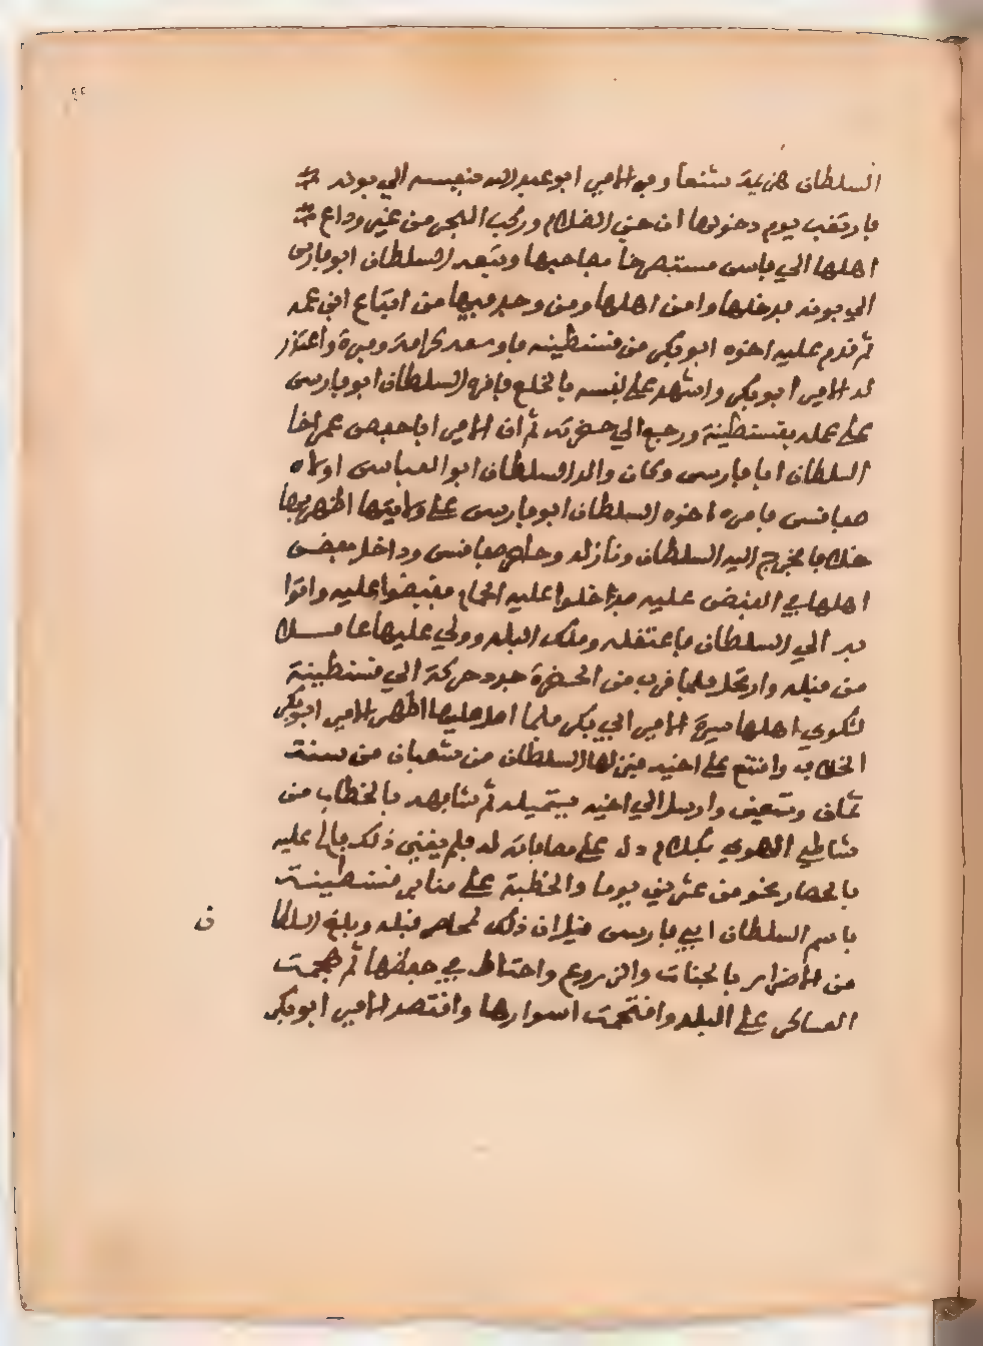 السلطان هزيمة شنعا وفر الامير ابو عبد الله بنفسه الي بونه
فارتقب يوم دخولها ان جن الظلام وركب البحر من غير وداع
اهلها الي فاس مستصرخا بصاحبها وتبعه السلطان ابو فارس
الي بونه فدخلها وامن اهلها ومن وجد فيها من اتباع ابن عمه
ثم قدم عليه اخوه ابو بكر من قسنطينه فاوسعه كرامة ومبرة واعتذر
له الامير ابو بكر واشهد على نفسه بالخلع فاقره السلطان ابو فارس
على عمله بقسنطينة ورجع الي حضرته ثم ان الامير ابا حفص عمر اخا
السلطان ابا فارس وكان والده السلطان ابو العباس اولاه
صفاقس فامره اخوه السلطان ابو فارس على ولايتها اظهر بها
خلافا فخرج اليه السلطان ونازله وحاصر صفاقس وداخل بعض
اهلها في القبض عليه فدخلوا عليه الحمام فقبضوا عليه واتوا
به الي السلطان فاعتقله وملك البلد وولي عليها عاملا
من قبله وارتحل فلما قرب من الحضرة جدد حركة الي قسنطينة
لشكوي اهلها سيرة الامير ابي بكر فلما احل عليها اظهر الامير ابو بكر
الخلاف وامتنع على اخيه فنزلها السلطان من شعبان من سنة
ثمان وتسعين وارسل الي اخيه يستميله ثم شابهه بالخطاب من
شاطي الهوي بكلام دل على محاباته له فلم يغن ذلك فالح عليه
بالحصار نحو من عشرين يوما والخطبة على منابر قسنطينة
باسم السلطان ابي فارس قيل ان ذلك لمحاصر قبله وبلغ السلطا
ن
من الاضرار بالجنات والزروع واحتاط في حفظها ثم هجمت
العساكر على البلد وافتحمت اسوارها واقتصد الامير ابو بكر